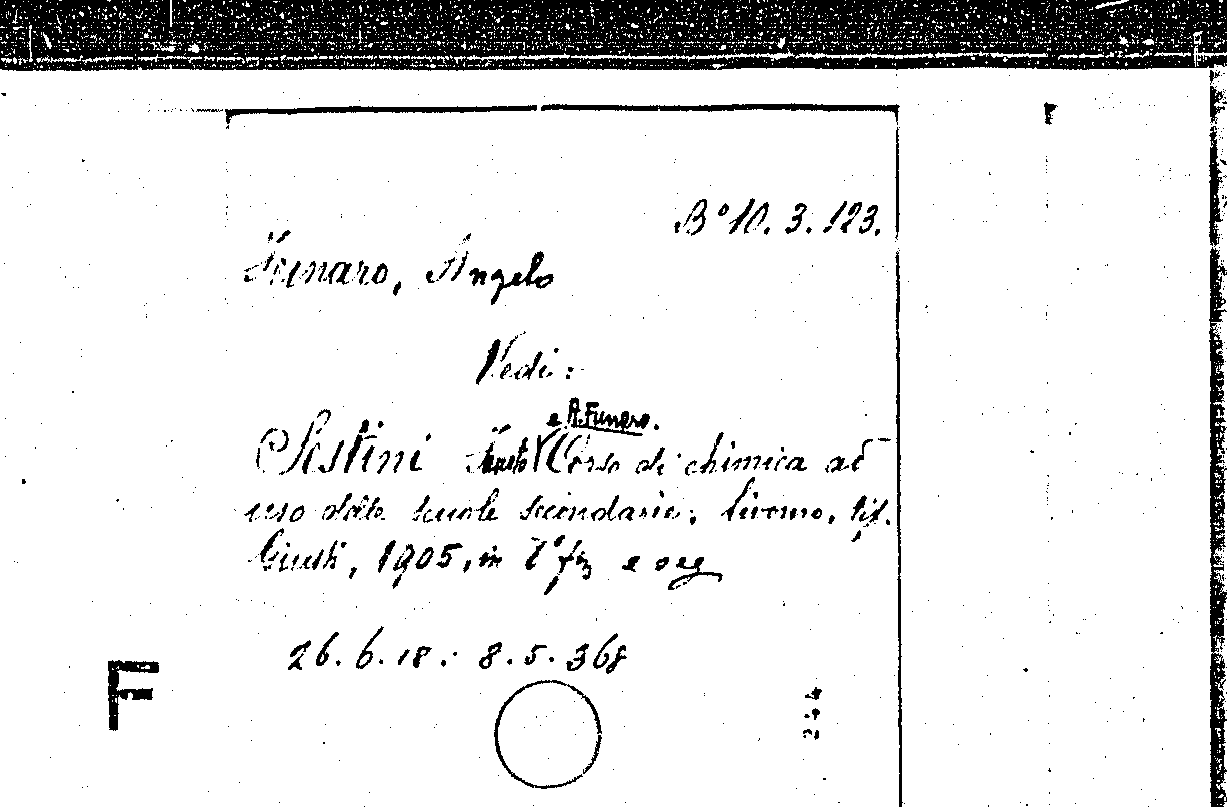 B° 10. 3. 123.
Funaro, Angelo
Vedi:
e A. Funaro.
Sestini Fausto Corso di chimica ad
uso delle scuole secondarie; Livorno, tip.
Giusti, 1905, in 8° fig e seg
26.6.18. - 8.5.368
F
244